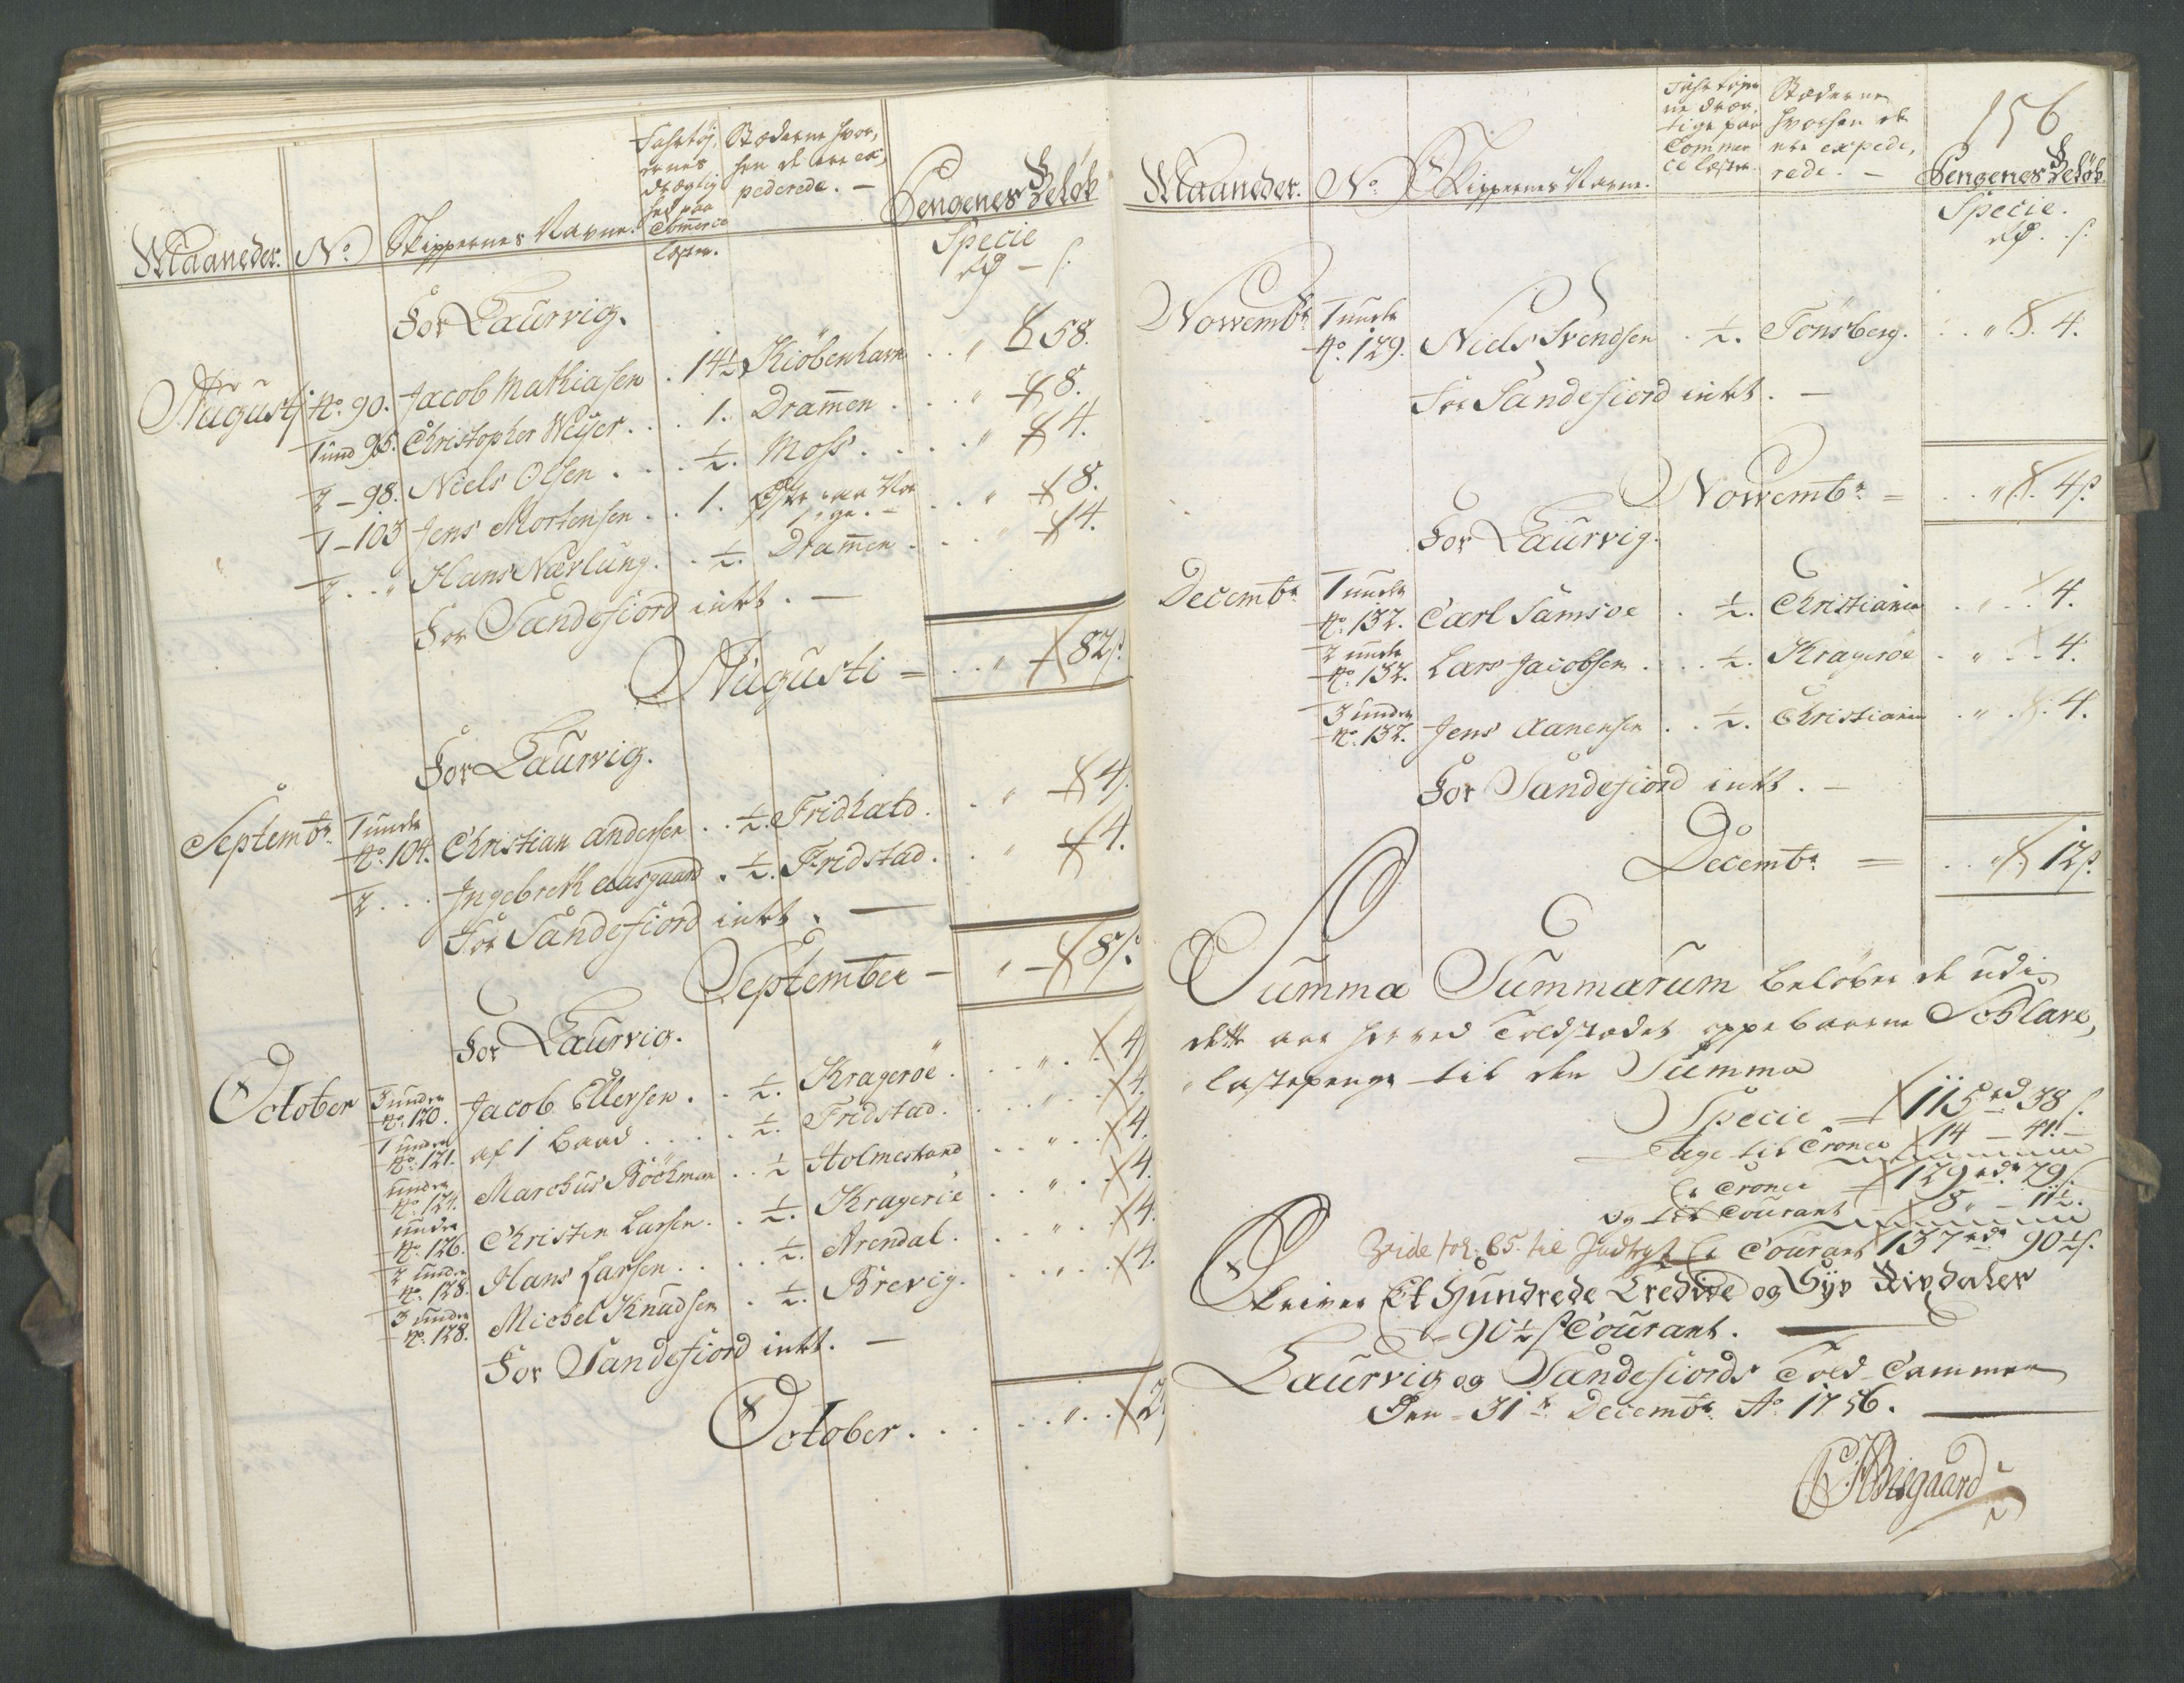 Maaneder. No. Skippernes Navne. Fahrtöj-ernes drægtighed paa Commerce læster. Stæderne hvorhen de ere expederede. Pengenes Beløb
Specie
rd – s.
For Laurvig.
Augusti No. 90. Jacob Mathiasen . 14½ Kiöbenhavn . . „ 58.
1 und 95. Christopher Weyer . . . 1. Drammen . . . „ 8.
2 – 98. Niels Olsen . . . ½. Moss . . . „ 4.
1 – 103 Jens Mortensen . . 1. . . „ 8.
2 . . „ Hans Nærlung . . ½. Drammen . . . „ 4.
For Sandefiord intet. –
Augusti = . . „ 82 s.
For Laurvig.
Septembr. 1 unde No. 104. Christian Andersen . . ½. Fridhald . . „ 4 s.
2 . . . Ingebreth Aasgaard . ½. Fridstad . . „ 4.
For Sandefiord intet. –
September – „ 8 s.
For Laurvig.
October 3 under No. 120. Jacob Ellersen . . ½. Krageröe . . . „ . 4
1 under No. 121. af 1 Baad . . . . ½. Fridstad . . . „ . 4.
under No. 124. Marchus Böchman . . ½ Holmestrand . . „ . . 4.
under No. 126. Christen Larsen . . ½. Krageröe . . „ . 4.
2 under No. 128. Hans Larsen . . . . ½. Arendal . . . „ . 4.
3 under No. 128. Michel Knudsen . ½. Brevig . . . „ . 4.
For Sandefiord intet. –
October . . . . . „ . . 2
156
Maaneder. No. Skippernes Navne. Fahrtöjerne drægtige paa Commerce læster. Stæderne hvorhen de ere expederede. – Pengenes Beløb.
Specie.
rd . s.
Novembr. 1 unde No. 129. Niels Svendsen . ½. Tönsberg. . . „ 4.
For Sandefiord intet. –
Novembr. = . . „ 4 s.
For Laurvig.
Decembr. 1 unde No. 132. Carl Samsoe . ½. Christiania . „ . 4.
2 unde No. 132. Lars Jacobsen . . . ½. Krageröe . „ . 4.
3 under No. 132. Jens Aanensen . . ½. Christiania . „ . 4.
For Sandefiord intet. –
Decembr. = . . „ 12 s.
Summa Summarum beløber de udi
dette aar her ved Toldstædet oppebaarne
lastepenge til den Summa
Specie – 115 rd 38 s.
Lage til Croner 14 – 41. –
Er Croner – 129 rdr 79 s.
og til Courant – 8 „ – 11½.
Er Courant 137 rdr 90½ s.
Skriver Et Hundrede Tredive og Syv Rixdaler
90½ s Courant.
Laurvig og Sandefiords Told-Cammer
Den 31te Decembr. Ao. 1756.